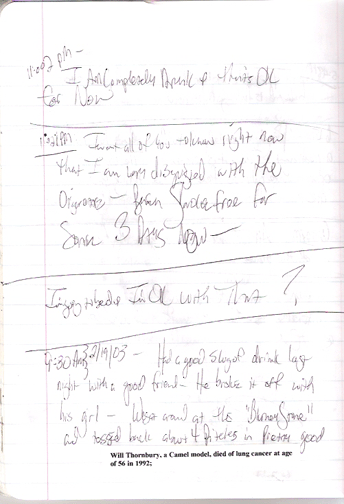 11:07 pm –
I Am Completely Drunk & that's OK
for Now
I want all of you to know right now
that I am very disgusted with the
– Been Smoke free for
Some 3 Days Now –
I'm OK with That ?
9:30 AM 2/19/03 – Had a good slug of drink last
night with a good friend – He broke it off with
his girl – around at the "
and tossed back about 4 Pitchers in good
Will Thornbury, a Camel model, died of lung cancer at age
of 56 in 1992;